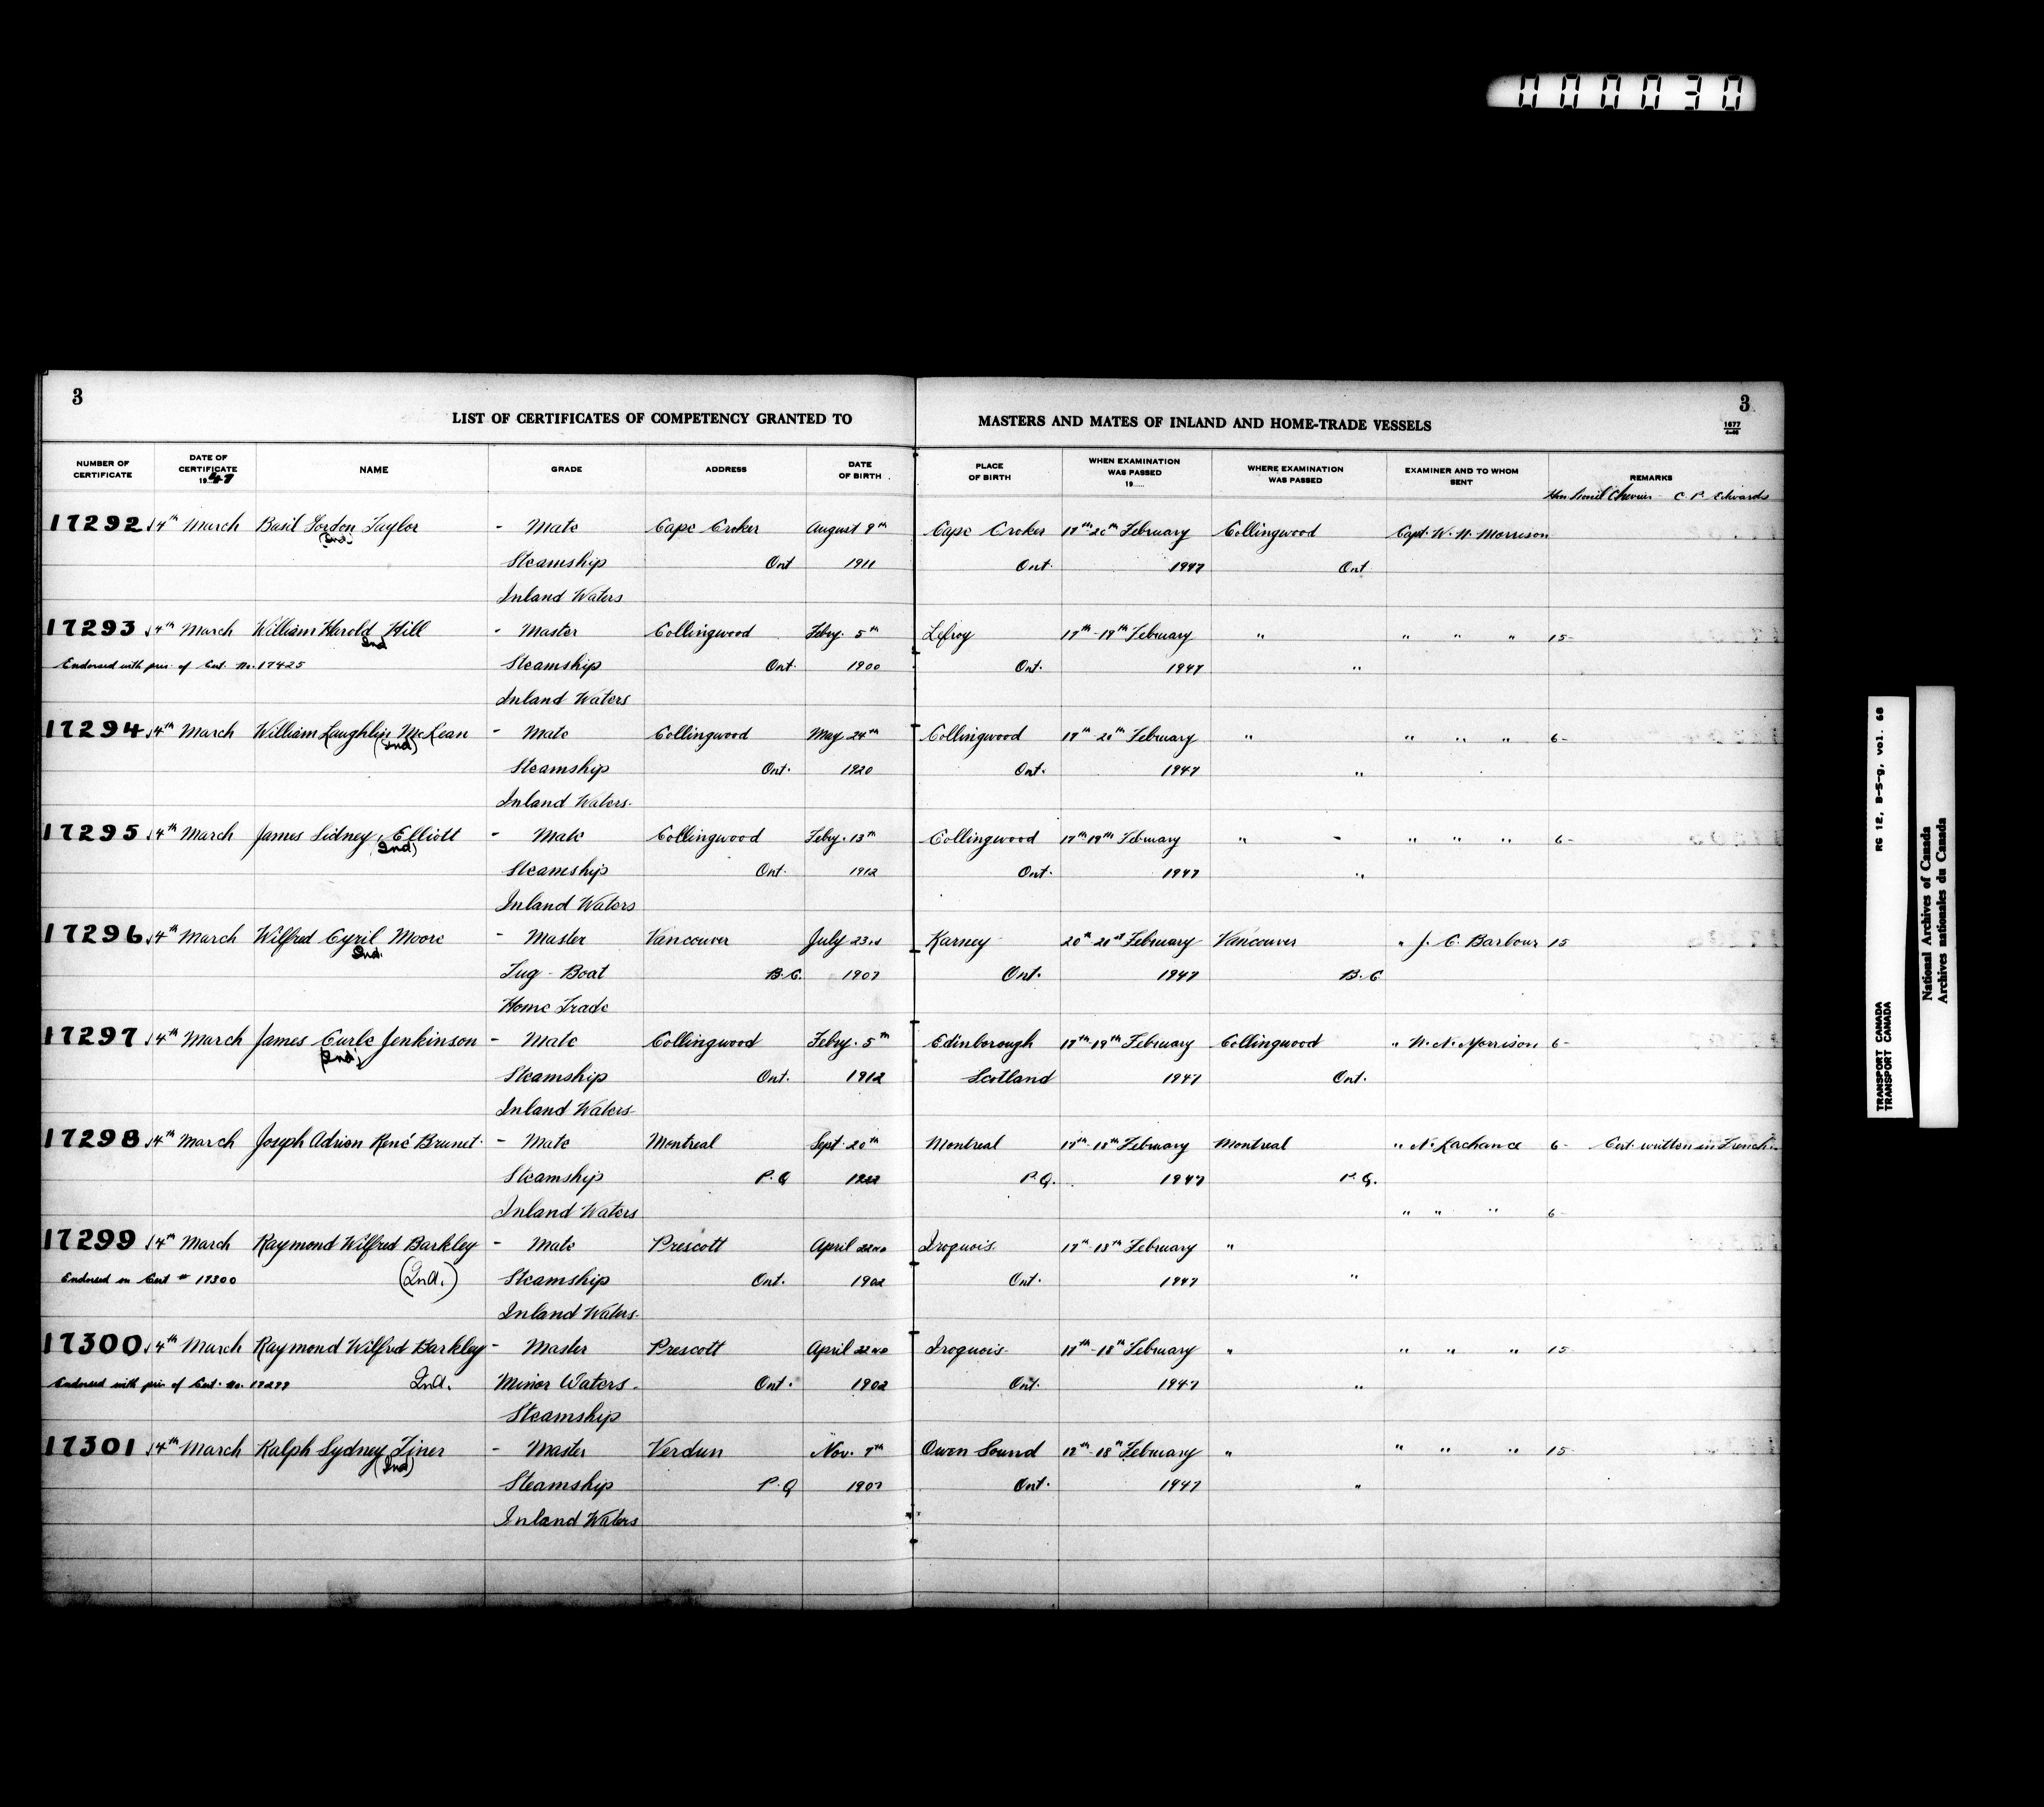 000030
3
3
LIST OF CERTIFICATES OF COMPETENCY GRANTED TO MASTERS AND MATES OF INLAND AND HOME-TRADE VESSELS
1677
NUMBER OF CERTIFICATE DATE OF CERTIFICATE 1947 NAME GRADE ADDRESS DATE OF BIRTH PLACE OF BIRTH WHEN EXAMINATION WAS PASSED 19 WHERE EXAMINATION WAS PASSED EXAMINER AND TO WHOM SENT REMARKS
Hon Lionel Chevrier C. P. Edwards
17292 14th March Basil Gordon Taylor - Mate Cape Croker August 9th Cape Croker 17th-20th February Collingwood Capt. W. N. Morrison
(Ind.) Steamship Ont 1911 Ont. 1947 Ont
Inland Waters
17293 14th March William Harold Hill - Master Collingwood Feby. 5th Lefroy 17th-19th February " " " " 15-
Ind
Endorsed with prev. of Cert. No. 17425 Steamship Ont. 1900 Ont. 1947 "
Inland Waters
17294 14th March William Laughlin McLean - Mate Collingwood May 24th Collingwood 17th-20th February " " " " 6-
(Ind) Steamship Ont. 1920 Ont. 1947 "
Inland Waters.
17295 14th March James Sidney Elliott - Mate Collingwood Feby. 13th Collingwood 17th 19th February " - " " " 6-
(Ind) Steamship Ont. 1912 Ont. 1947 "
Inland Waters
17296 14th March Wilfred Cyril Moore - Master Vancouver July 23rd Karney 20th 21st February Vancouver " J. C. Barbour 15
Ind. Tug-Boat B.C. 1907 Ont. 1947 B.C
Home Trade
17297 14th March James Curle Jenkinson - Mate Collingwood Feby. 5th Edinborough 17th-19th February Collingwood " W. N. Morrison 6-
(Ind) Steamship Ont. 1912 Scotland 1947 Ont.
Inland Waters
17298 14th March Joseph Adrien René Brunet - Mate Montreal Sept. 20th Montreal 17th-18th February Montreal " N. Lachance 6- Cert. written in French.
Steamship P.Q 1922 P.Q. 1947 P.Q.
Inland Waters " " " 6-
17299 14th March Raymond Wilfred Barkley - Mate Prescott April 22nd Iroquois. 17th-18th February "
Endorsed on Cert # 17300 (Ind.) Steamship Ont. 1902 Ont. 1947 "
Inland Waters.
17300 14th March Raymond Wilfred Barkley - Master Prescott April 22nd Iroquois 17th-18th February " " " " 15-
Endorsed with prev. of Cert. No. 17299 Ind. Minor Waters. Ont. 1902 Ont. 1947 "
Steamship
17301 14th March Ralph Sydney Finer - Master Verdun Nov. 7th Owen Sound 17th-18th February " " " " 15-
(Ind) Steamship P.Q 1907 Ont. 1947 "
Inland Waters
TRANSPORT CANADA RG 12, B-5-g, vol. 68
TRANSPORT CANADA
National Archives of Canada
Archives nationales du Canada